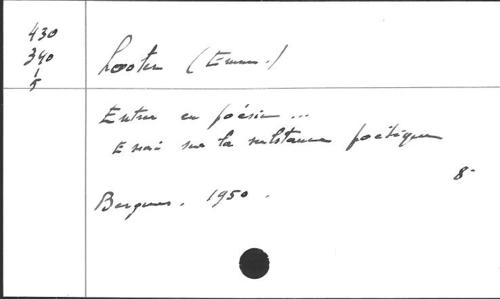 430
340
1
5
Looten (Emm.)
Entrer en poésie ...
Essai sur la substance poétique
8-
Bergues. 1950.